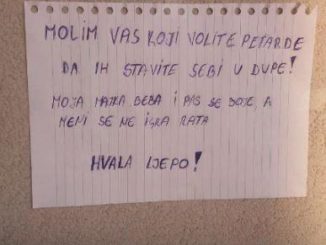 MOLIM VAS KOJI VOLITE PETARDE
DA IH STAVITE SEBI U DUPE!
MOJA MAJKA BEBA I PAS SE BOJE, A
MENI SE NE IGRA RATA
HVALA LIJEPO!